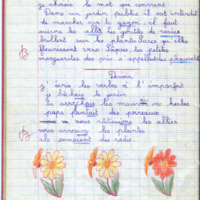 je choisis le mot qui convient
Dans un jardin public il est interdit
de marcher sur le gazon, il faut
suivre les allées les gouttes de rosée
brillent sur les plantes Parce qu'elles
fleurissent vers Pâques les petites
marguerites des prés s'appellent des pâquerettes
Devoir
j'écris les verbes à l'imparfait
je bêchais le jardin
tu arrachais les mauvaises herbes
papa plantait des poireaux
nous ratissions les allées
vous arrosiez les plantes
ils semaient des radis